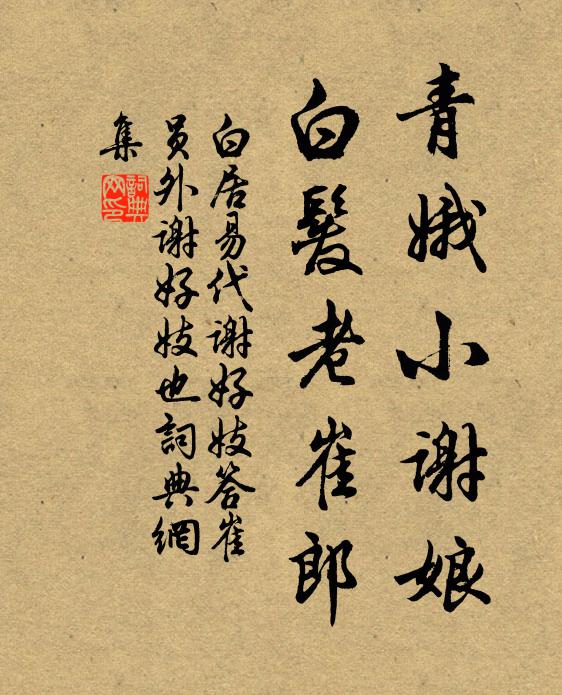 青娥小谢娘
白髮老崔郎
白居易代谢好妓答崔
员外谢好妓也詞典網
集
詞典
网印